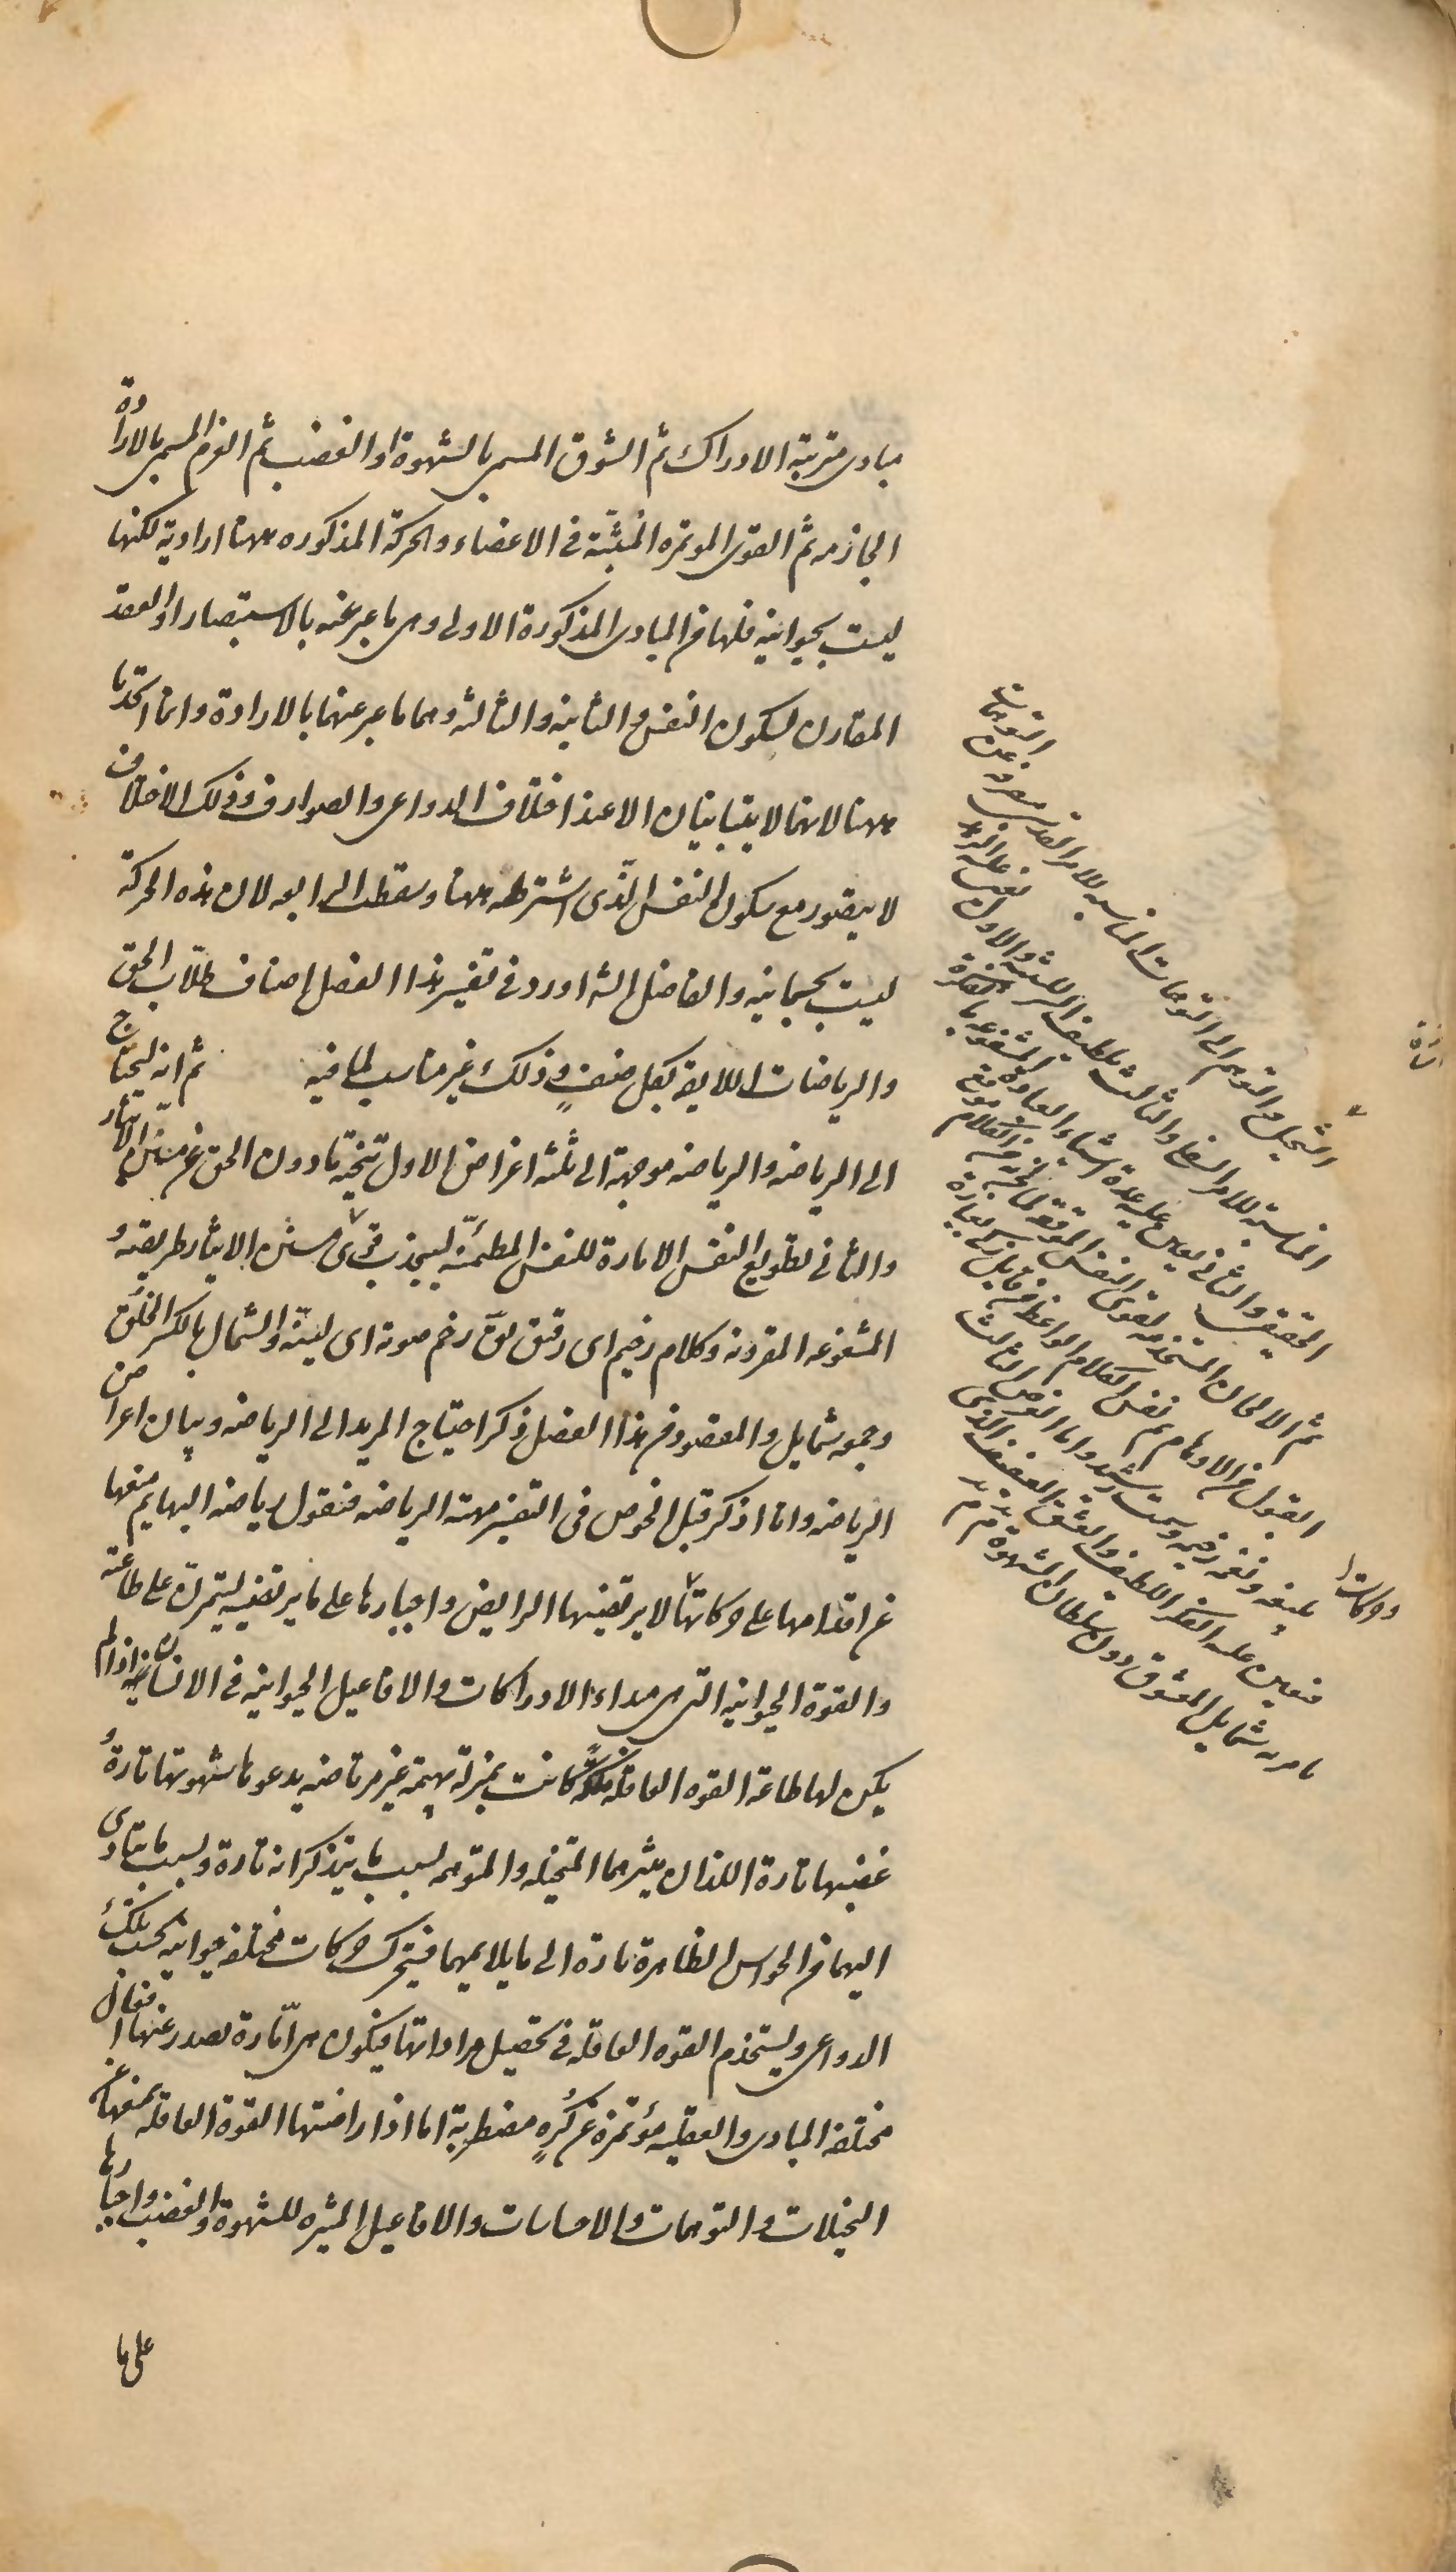 مبادى مترتبة الادراك ثم الشوق المسمى بالشهوة او الغضب ثم العزم المسمى بالارادة
الجازمه ثم القوى الموتمره المنبثّة فى الاعضاء والحركة المذكوره ههنا ارادية لكنها
ليست بحيوانية فلها من المبادى المذكورة الاولى وهى ما عبر عنه بالاستبصار او العقد
المقارن لسكون النفس والثانيه والثالثه وهما ما عبر عنهما بالارادة وانما اتحدتا
ههنا لانهما لا يتباينان الا عند اختلاف الدواعى والصوارف وذلك الاختلاف
لا يتصور مع سكون النفس الذّى اشترطه ههنا وسقطت الرابعه لان هذه الحركة
ليست بجسمانيه والفاضل الشه اورد فى تفسير هذا الفصل اصناف طلّاب الحق
والرياضات اللايقه بكل صنفٍ وذلك غير مناسب لما فيه ثم انه ليحتاج
الى الرياضه والرياضه موجهة الى ثلثه اغراض الاول تنحية ما دون الحق عن مستن الايثار
والثانى تطويع النفس الامارة للنفس المطمئنّه لينجذب قوى مستن الايثار طريقته و
المشفوعه المقرونه وكلام رخيم اى رقيق يقّ رخم صوته اى لينّه والشمال بالكسر الخلق
وجمعه شمايل والمقصود من هذا الفصل ذكر احتياج المريد الى الرياضه وبيان اغراض
الرياضه وانا اذكر قبل الخوض فى التفسير مهية الرياضه فنقول رياضه البهايم منعها
عن اقدامها على حركات لا يرتضيها الرايض واجبارها على ما يرتضيه ليتمرّن على طاعته
والقوة الحيوانيه التى هى مبداء الادراكات والافاعيل الحيوانيه فى الانسان اذا لم
يكن لها طاعة القوه العاقله ملكةً كانت بمنزلة بهيمة غير مرتاضه يدعوها شهوتها تارةً و
غضبها تارة اللذان يثيرهما المتخيله والمتوهمه بسبب ما يتذكرانه تارة وبسبب ما يتادى
اليهما من الحواس الظاهرة تارة الى ما يلايمهما فيتحرك حركات مختلفه حيوانيه بحسب تلك
الدواعى ويستخدم القوه العاقله فى تحصيل مراداتها فيكون هى امّارة يصدر عنها افعال
مختلفه المبادى والعقليه مؤتمرة عن كُرهٍ مضطربة اما اذا راضتها القوة العاقله بمنعها عن
التخيلات والتوهمات والاحساسات والافاعيل المثيره للشهوة والغضب واجبارها
على ما
التخيل والتوهم الى التوهمات المناسبه للامر القدسى منصرفه عن التوهمات
المناسبة للامر السفلى والثالث تلطيف السر للتنبه والاول يعين عليه الزهد
الحقيقى والثانى يعين عليه عدة اشياء العبادة المشفوعه بالفكرة
ثم الالحان المستخدمه لقوى النفس الموقعه لما لحن به من الكلام موقع
القبول من الاوهام ثم نفس الكلام الواعظ من قايل زكى بعبارة
بليغه ونغمه رخيمه وسمت رشيد واما الغرض الثالث
فيعين عليه الفكر اللطيف والعشق العفيف الذى
يامر به شمايل المعشوق دون سلطان الشهوة